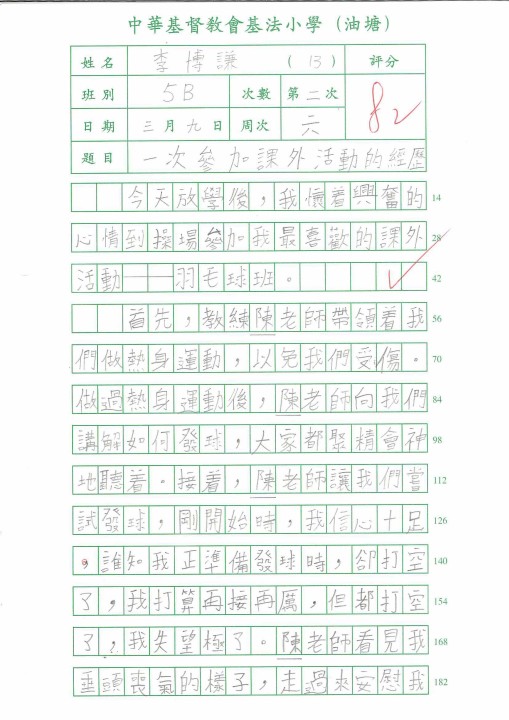 中華基督教會基法小學（油塘）
姓名 李博謙 （13） 評分
班別 5B 次數 第二次 82
日期 三月九日 周次 六
題目 一次參加課外活動的經歷
今天放學後，我懷着興奮的 14
心情到操場參加我最喜歡的課外 28
活動——羽毛球班。 42
首先，教練陳老師帶領着我 56
們做熱身運動，以免我們受傷。 70
做過熱身運動後，陳老師向我們 84
講解如何發球，大家都聚精會神 98
地聽着。接着，陳老師讓我們嘗 112
試發球，剛開始時，我信心十足 126
。誰知我正準備發球時，卻打空 140
了，我打算再接再厲，但都打空 154
了，我失望極了。陳老師看見我 168
垂頭喪氣的樣子，走過來安慰我 182